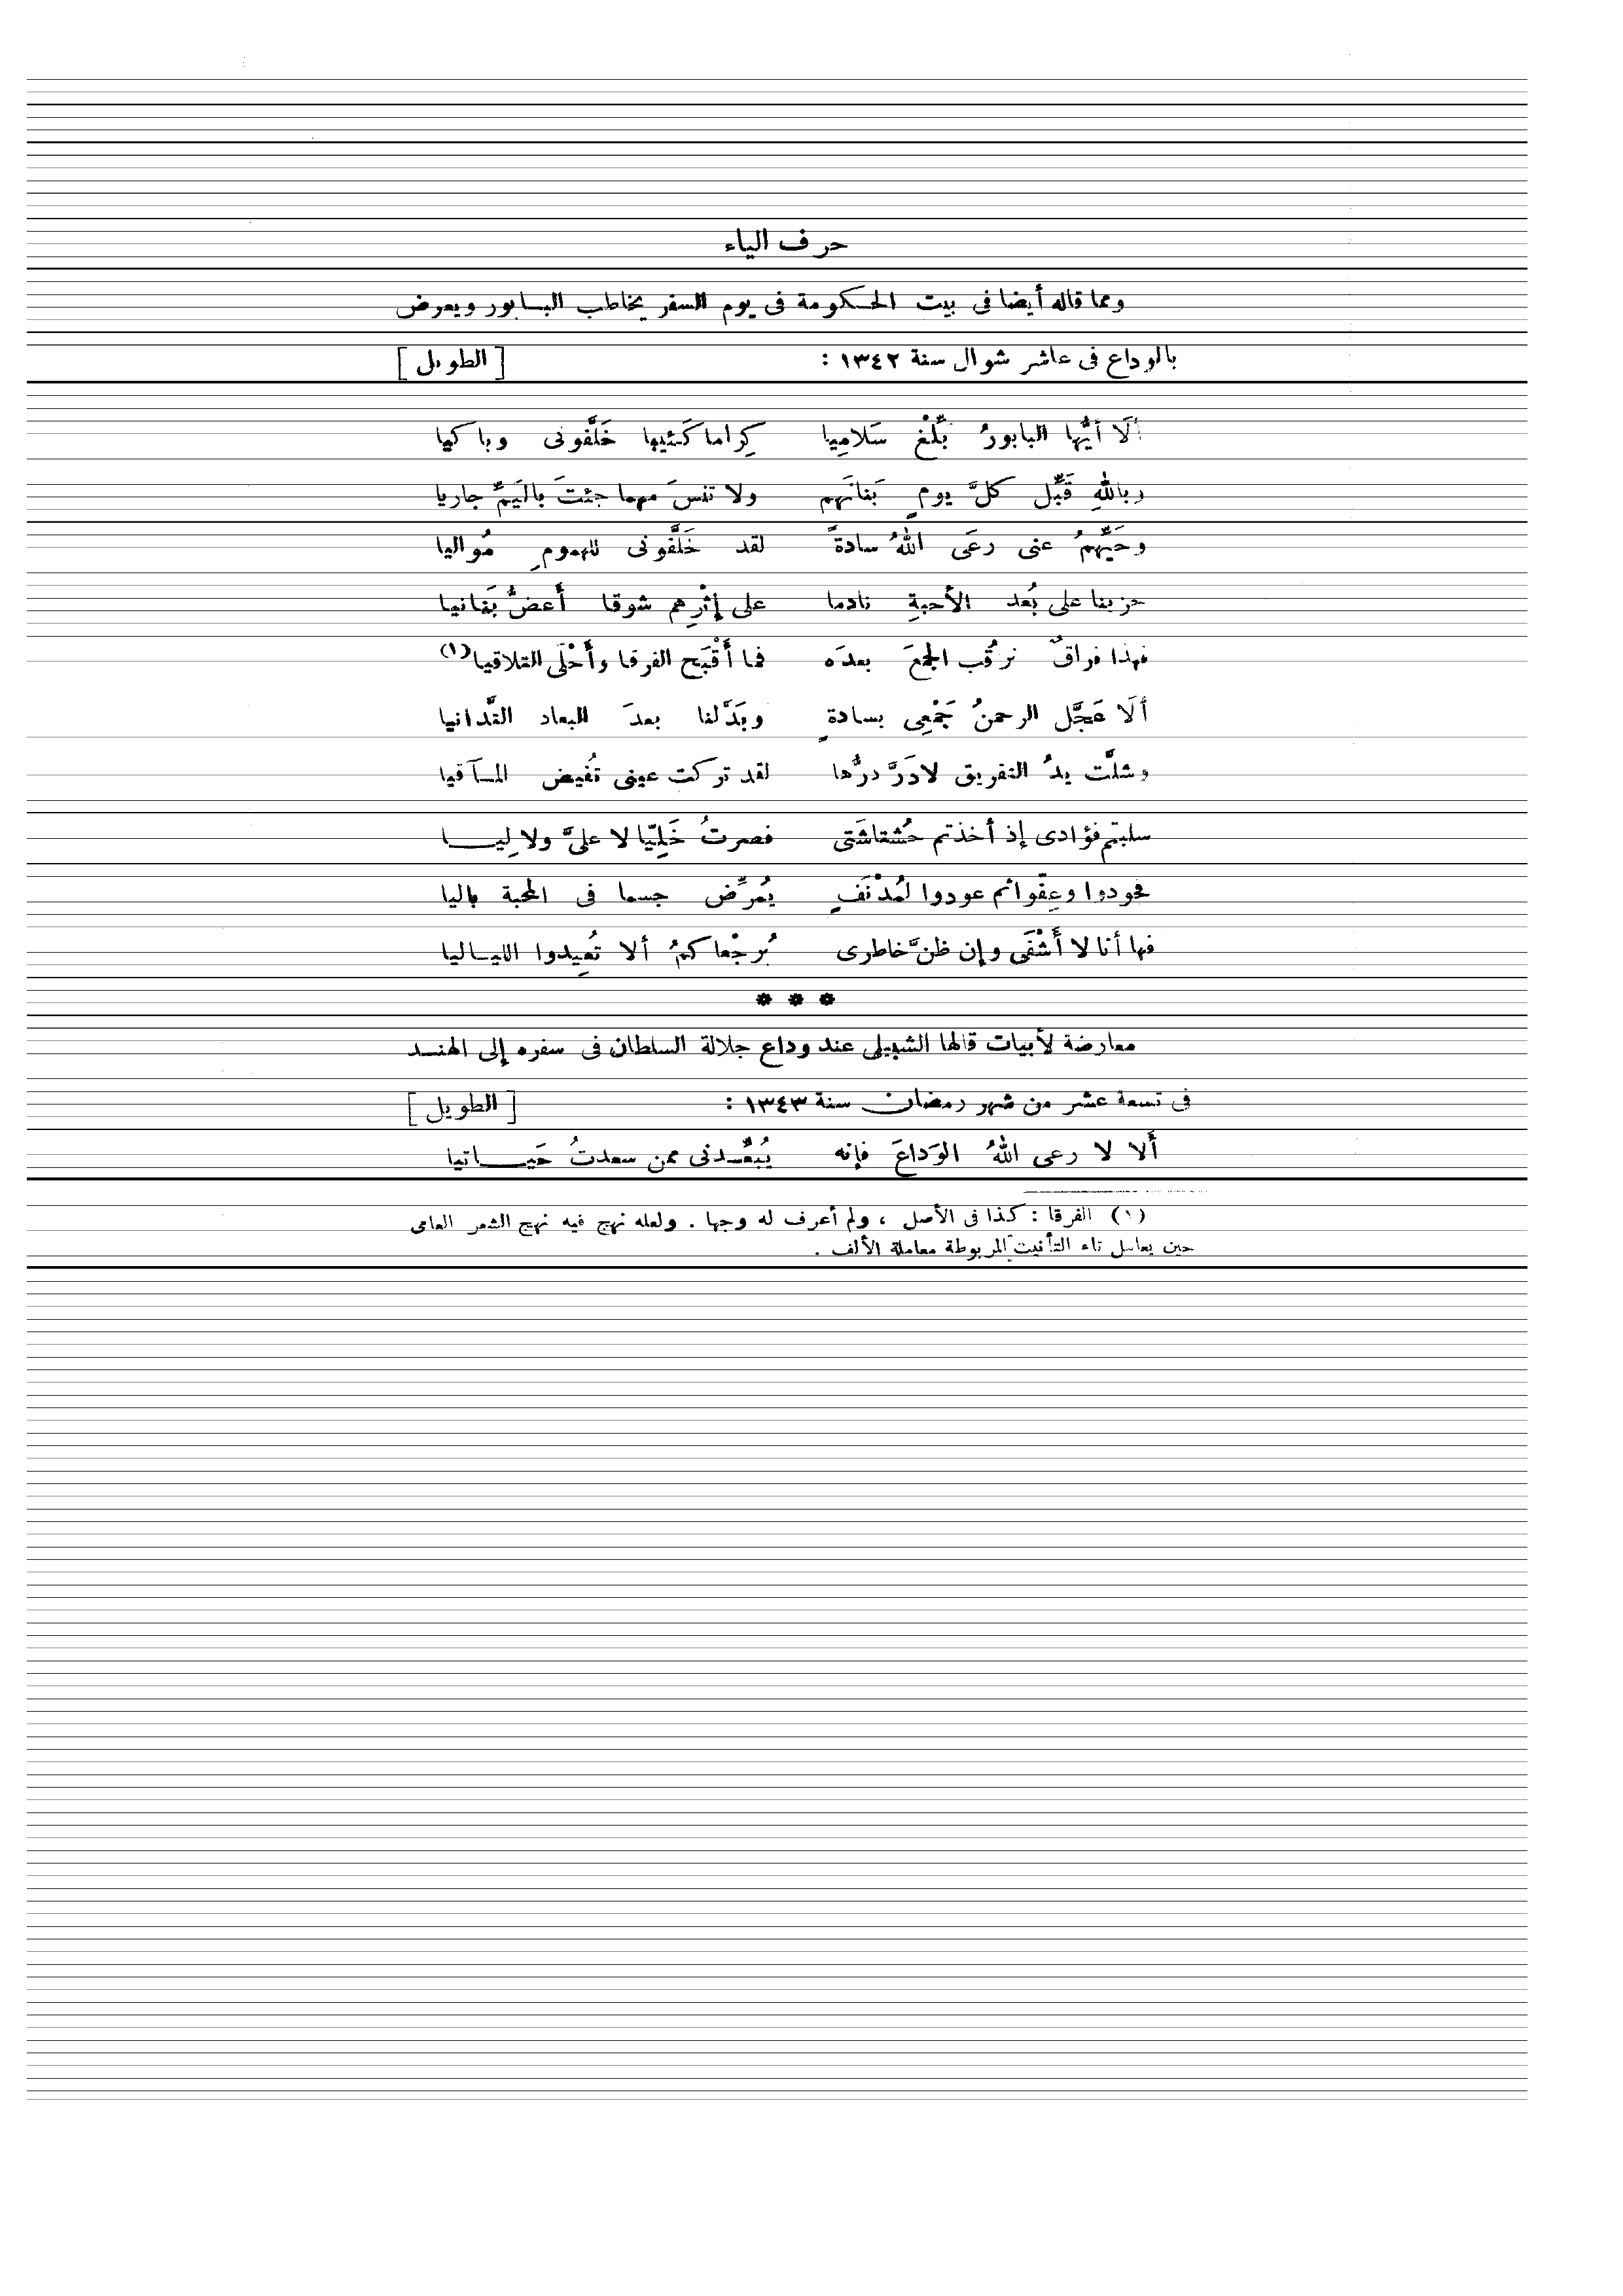 حرف الياء
ومما قاله أيضا فى بيت الحكومة فى يوم السفر يخاطب البابور ويعرض
بالوداع فى عاشر شوال سنة ١٣٤٢ : [ الطويل ]
ألَا أيُّها البابورُ بَلِّغْ سَلامِيا كِراما كَئيبا خَلَّفونى وباكيا
وباللهِ قَبِّل كلَّ يومٍ بَنانَهم ولا تنسَ مهما جئتَ باليَمِّ جاريا
وحَيِّهمُ عنى رعَى اللهُ سادةً لقد خَلَّفونى للهمومِ مُواليا
حزينا على بُعد الأحبةِ نادما على إثْرِهم شوقا أَعضُّ بَنانيا
فهذا فراقٌ نرقُب الجمعَ بعدَه فما أَقْبَح الفرقا وأَحْلَى التلاقيا (١)
ألَا عَجَّل الرحمنُ جَمْعِى بسادةٍ وبَدَّلنا بعدَ البعاد التَّدانيا
وشلَّت يدُ التفريق لادَرَّ درُّها لقد تركت عينى تُفيض المآقيا
سلبتم فؤادى إذ أخذتم حُشقاشَتى فصرتُ خَلِيّا لا علىَّ ولا لِيا
فجودوا وعِفّوا ثم عودوا لمُدْنَفٍ يُمرِّض جسما فى المحبة باليا
فها أنا لا أَشْفَى وإن ظنَّ خاطرى بُرجْعاكمُ ألا تُعِيدوا اللياليا
* * *
معارضة لأبيات قالها الشبيلى عند وداع جلالة السلطان فى سفره إلى الهند
فى تسعة عشر من شهر رمضان سنة ١٣٤٣ : [ الطويل ]
ألا لا رعى اللهُ الوَداعَ فإنه يُبعِّدنى ممن سعدتُ حَياتيا
(١) الفرقا : كذا فى الأصل ، ولم أعرف له وجها . ولعله نهج فيه نهج الشعر العامى
حين يعامل تاء التأنيث المربوطة معاملة الألف .